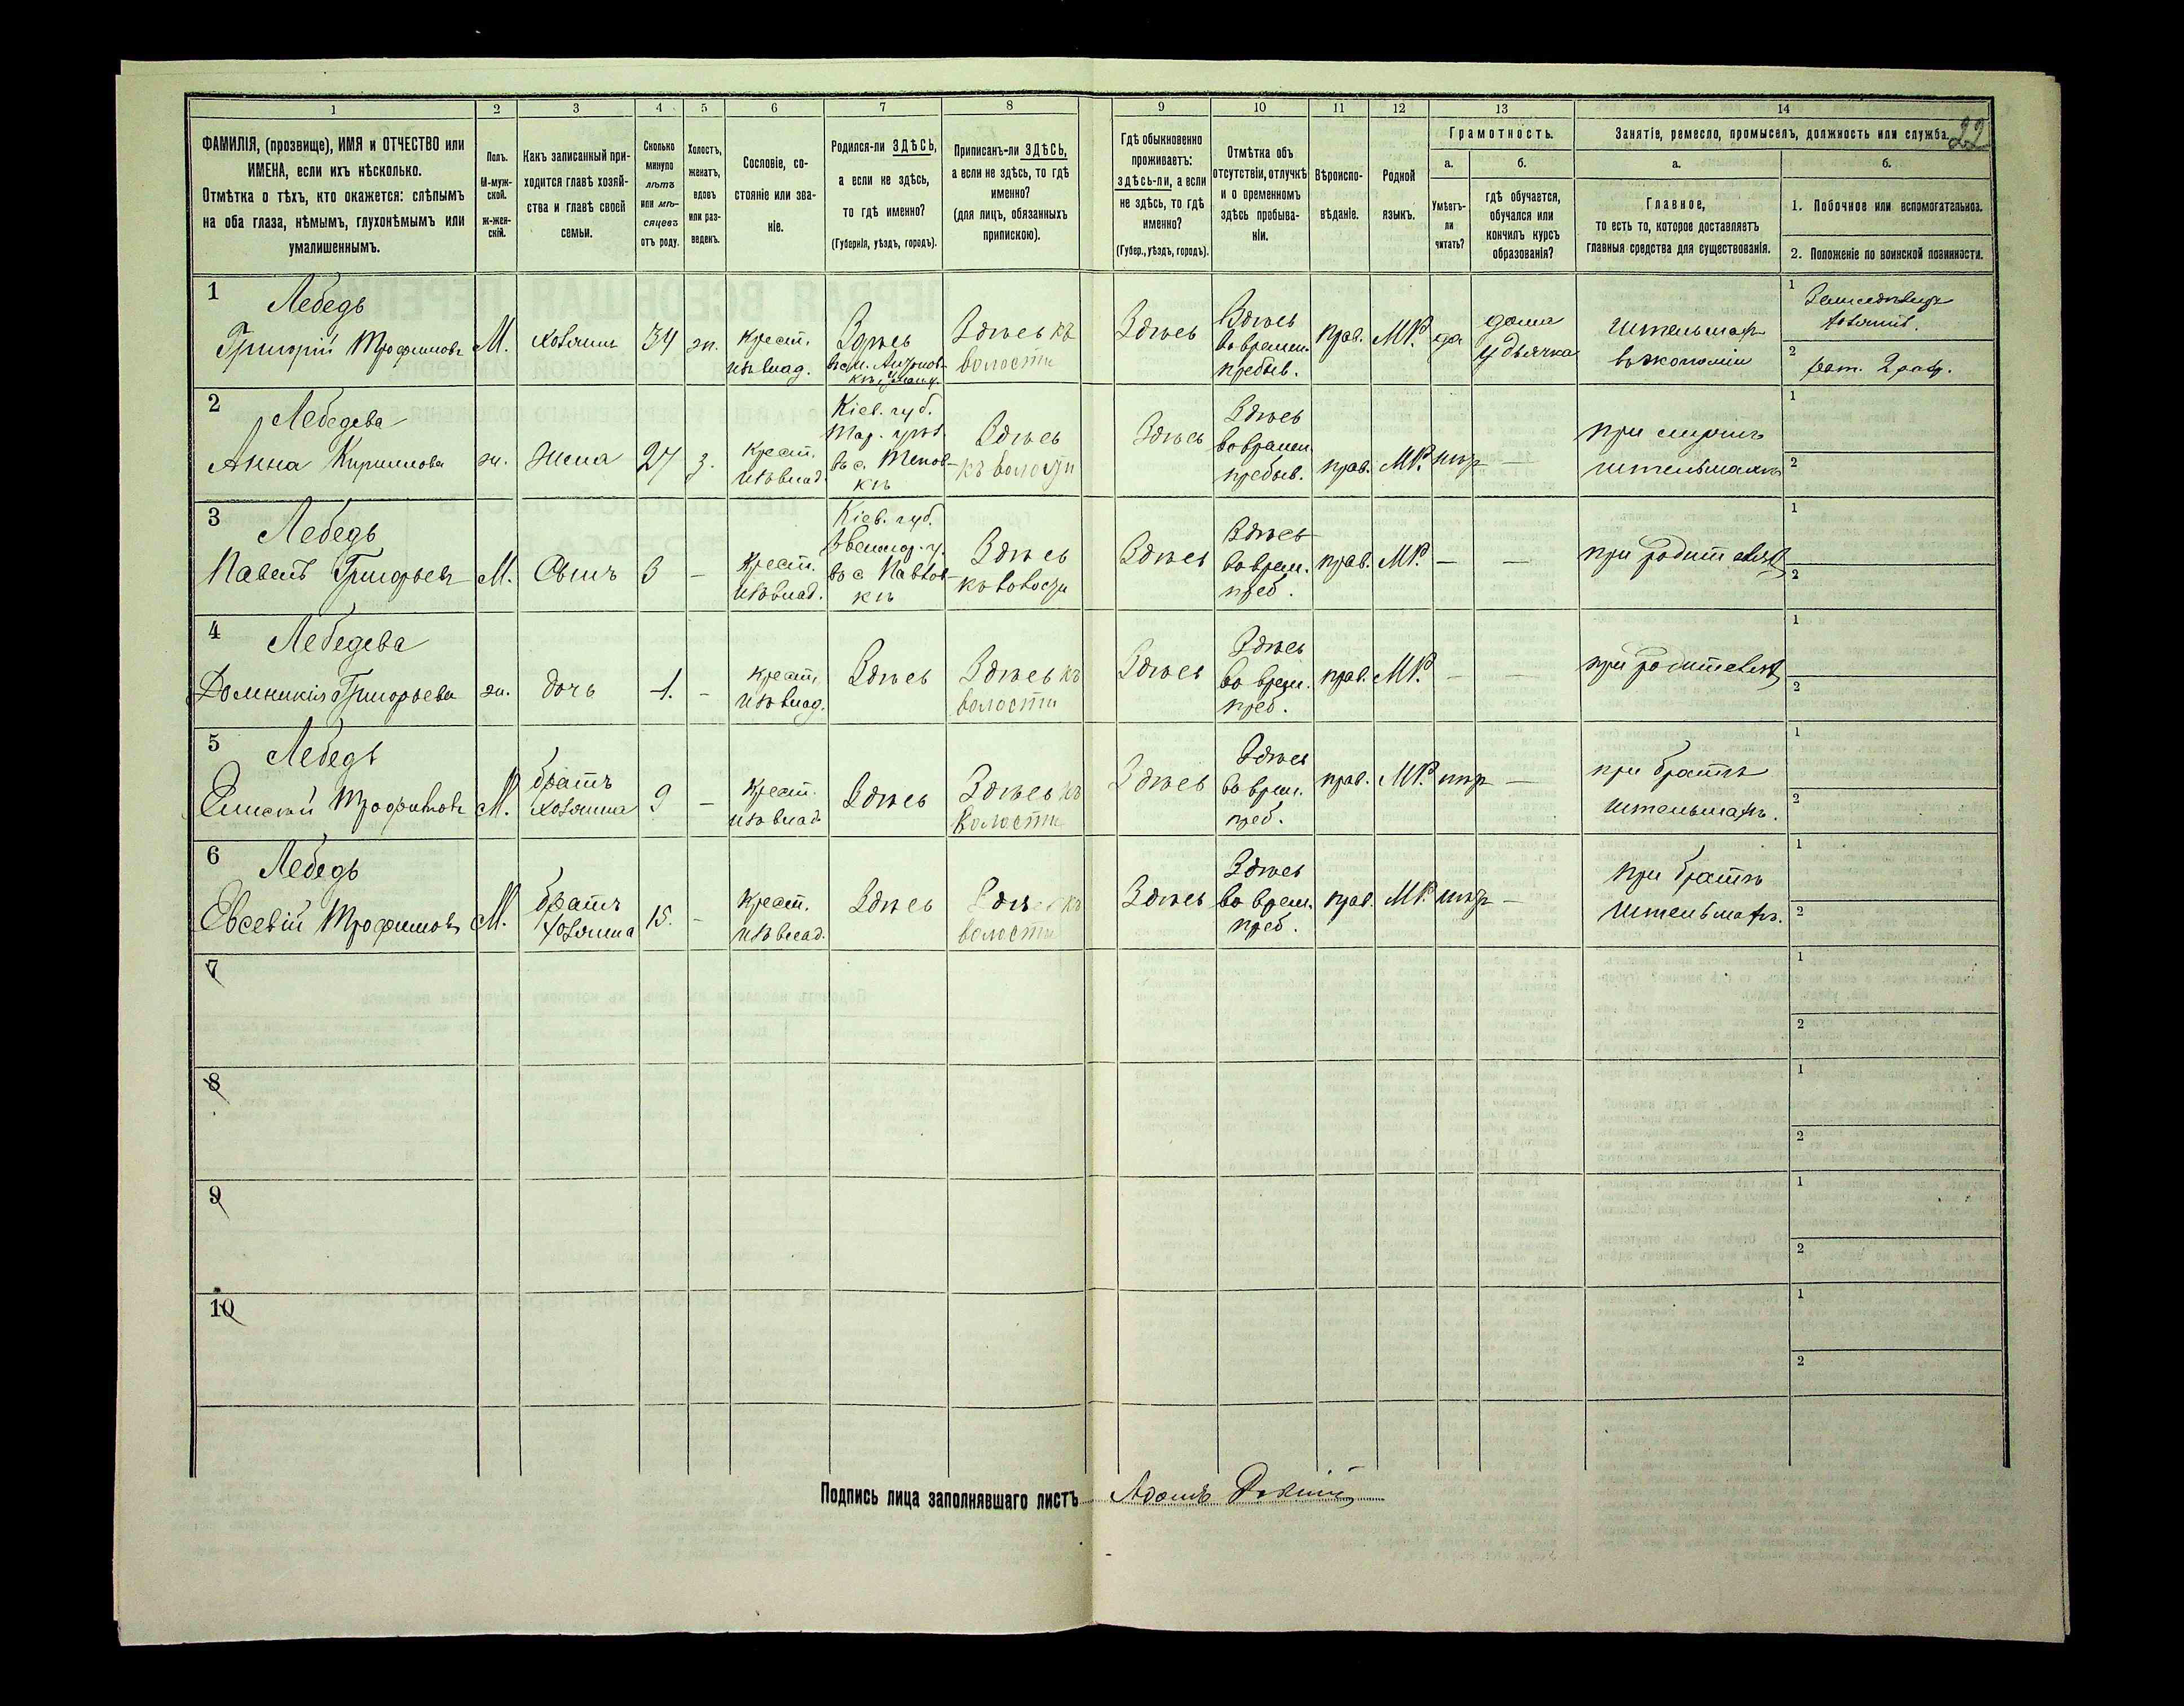 1 2 3 4 5 6 7 8 9 10 11 12 13 14
22
ФАМИЛІЯ, (прозвище), ИМЯ и ОТЧЕСТВО или
ИМЕНА, если ихъ нѣсколько.
Отмѣтка о тѣхъ, кто окажется: слѣпымъ
на оба глаза, нѣмымъ, глухонѣмымъ или
умалишеннымъ.
Полъ.
М-муж-
ской.
ж-жен-
скій.
Какъ записанный при-
ходится главѣ хозяй-
ства и главѣ своей
семьи.
Сколько
минуло
лѣтъ
или мѣ-
сяцевъ
отъ роду.
Холостъ,
женатъ,
вдовъ
или раз-
веденъ.
Сословіе, со-
стояніе или зва-
ніе.
Родился-ли ЗДѢСЬ,
а если не здѣсь,
то гдѣ именно?
(Губернія, уѣздъ, городъ).
Приписанъ-ли ЗДѢСЬ,
а если не здѣсь, то гдѣ
именно?
(для лицъ, обязанныхъ
припискою).
Гдѣ обыкновенно
проживаетъ:
здѣсь-ли, а если
не здѣсь, то гдѣ
именно?
(Губер., уѣздъ, городъ).
Отмѣтка объ
отсутствіи, отлучкѣ
и о временномъ
здѣсь пребыва-
ніи.
Вѣроиспо-
вѣданіе.
Родной
языкъ.
Грамотность.
а.
Умѣетъ-
ли
читать?
б.
гдѣ обучается,
обучался или
кончилъ курсъ
образованія?
Занятіе, ремесло, промыселъ, должность или служба.
а.
Главное,
то есть то, которое доставляетъ
главныя средства для существованія.
б.
1. Побочное или вспомогательное.
2. Положеніе по воинской повинности.
1
Лебедь
Григорій Трофимовъ
М.
хозяинъ
34
ж.
крест.
изъ влад.
Здѣсь
Здѣсь къ
волости
Здѣсь
Здѣсь
во времен.
пребыв.
прав.
МР.
да
дома
у дьячка
1
2
2
Лебедева
Анна Кириллова
ж.
Жена
27
з.
крест.
изъ влад.
Кіев. губ.
въ с. Тенов-
кѣ
Здѣсь
къ волости
Здѣсь
Здѣсь
во времен.
пребыв.
прав.
МР.
нѣт
—
при
1
2
3
Лебедь
Павелъ Григорьевъ
М.
Сынъ
3
—
крест.
изъ влад.
Кіев. губ.
Звениг. у.
въ с. Павлов-
кѣ
Здѣсь
къ волости
Здѣсь
Здѣсь
во врем.
преб.
прав.
МР.
—
—
при родителяхъ
1
2
4
Лебедева
Домникія Григорьева
ж.
дочь
1.
-
крест.
изъ влад.
Здѣсь
Здѣсь къ
волости
Здѣсь
Здѣсь
во врем.
преб.
прав.
МР.
—
—
при родителяхъ
1
2
5
Лебедь
Елисей Трофимовъ
М.
братъ
хозяина
9
—
крест.
изъ влад.
Здѣсь
Здѣсь къ
волости
Здѣсь
Здѣсь
во врем.
преб.
прав.
МР.
нѣт
—
при братѣ
1
2
6
Лебедь
Евсевій Трофимовъ
М.
братъ
хозяина
15.
-
крест.
изъ влад.
Здѣсь
Здѣсь къ
волости
Здѣсь
Здѣсь
во врем.
преб.
прав.
МР.
нѣт
—
при братѣ
1
2
7
1
2
8
1
2
9
1
2
10
1
2
Подпись лица заполнявшаго листъ Адамъ